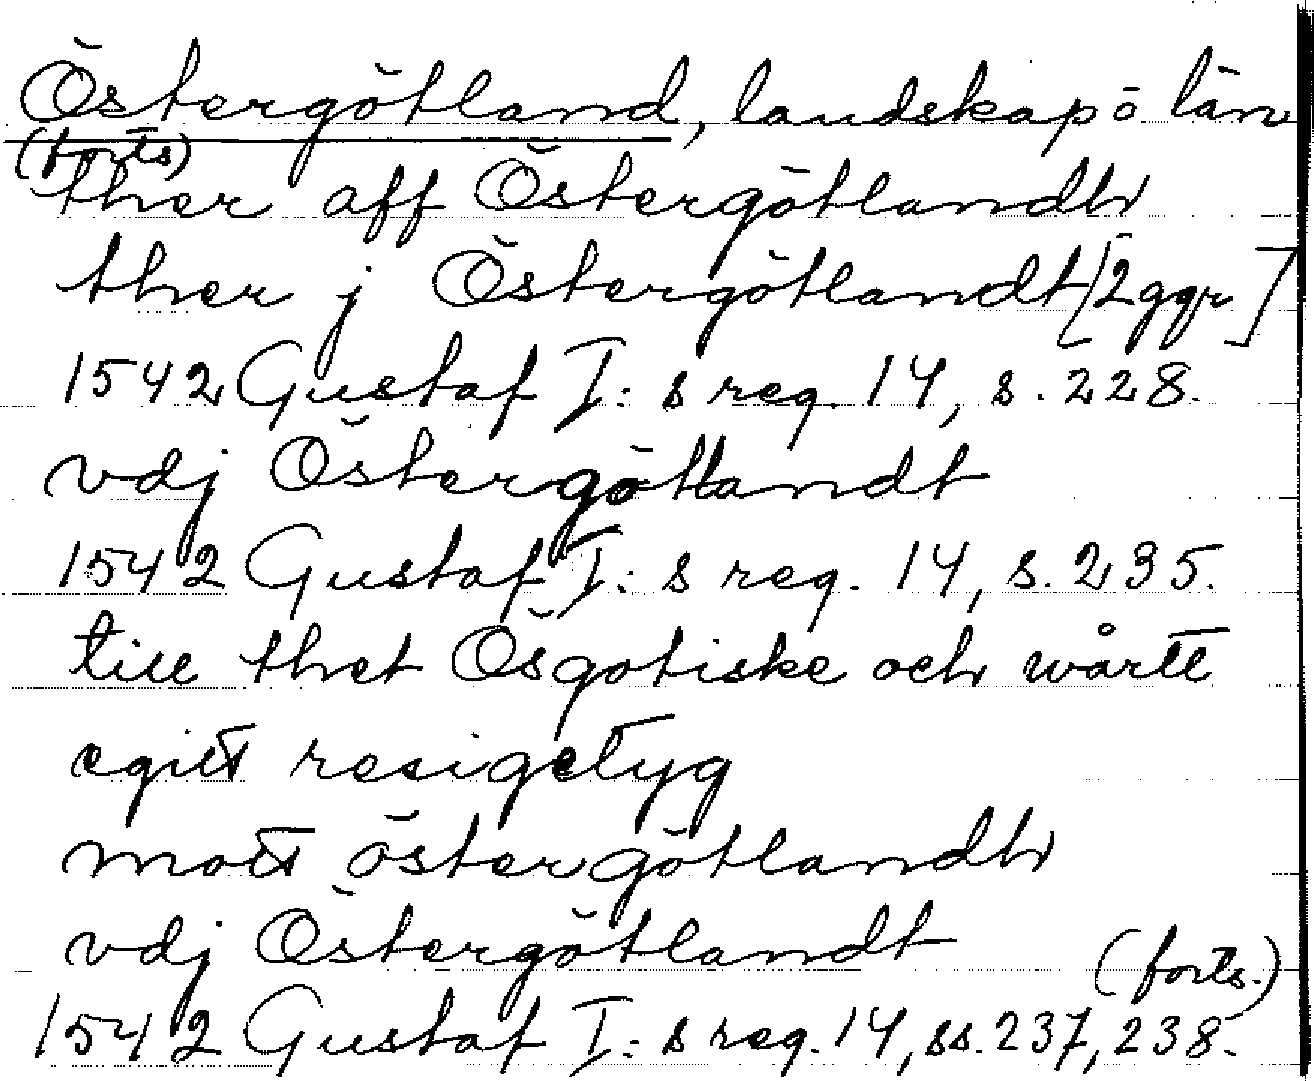 Östergötland, landskap o län
(forts)
ther aff Östergötlandh
ther j Östergötlandt [2 ggr]
1542 Gustaf I: s reg. 14, s. 228.
vdj Östergötlandt
1542 Gustaf I: s reg. 14, s. 235.
till thet Ösgotiske och wårtt
egitt resigetyg
mott östergötlandh
vdj Östergötlandt (forts.)
1542 Gustaf I: s reg. 14, ss. 237, 238.